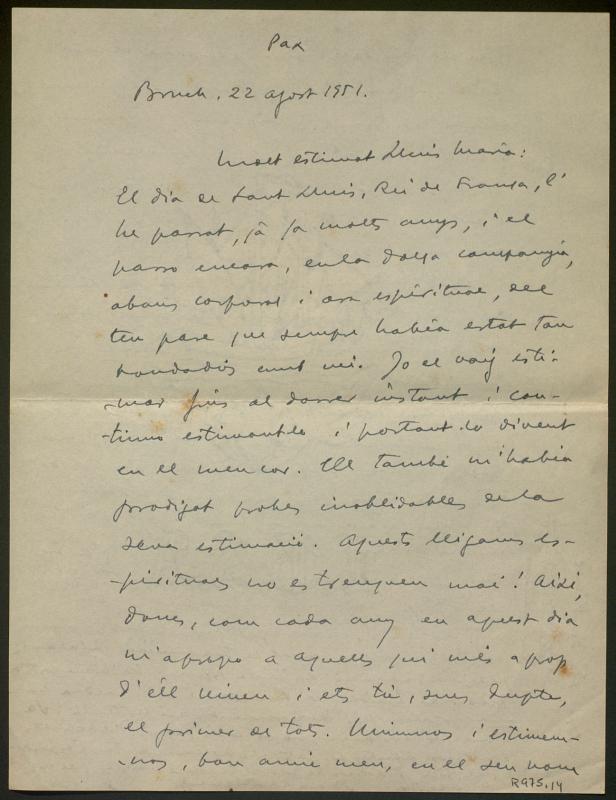 Pax
Bruch, 22 agost 1951.
Molt estimat Lluis Maria:
El dia de Sant Lluis, Rei de França, l'
he passat, ja fa molts anys, i el
passo encara, en la dolça companyia,
abans corporal i ara espiritual, del
teu pare que sempre habia estat tan
bondadós amb mi. Jo el vaig esti-
-mar fins al darrer instant i con-
-tinuo estimantlo i portant-lo vivent
en el meu cor. Ell també m'habia
prodigat probes inoblidables de la
seva estimació. Aquests lligams es-
-pirituals no es trenquen mai! Aixi,
doncs, com cada any en aquest dia
m'apropo a aquells qui més aprop
d'éll viuen i ets tu, sens dupte,
el primer de tots. Unim-nos i estimem-
-nos, bon amic meu, en el seu nom
R975,14